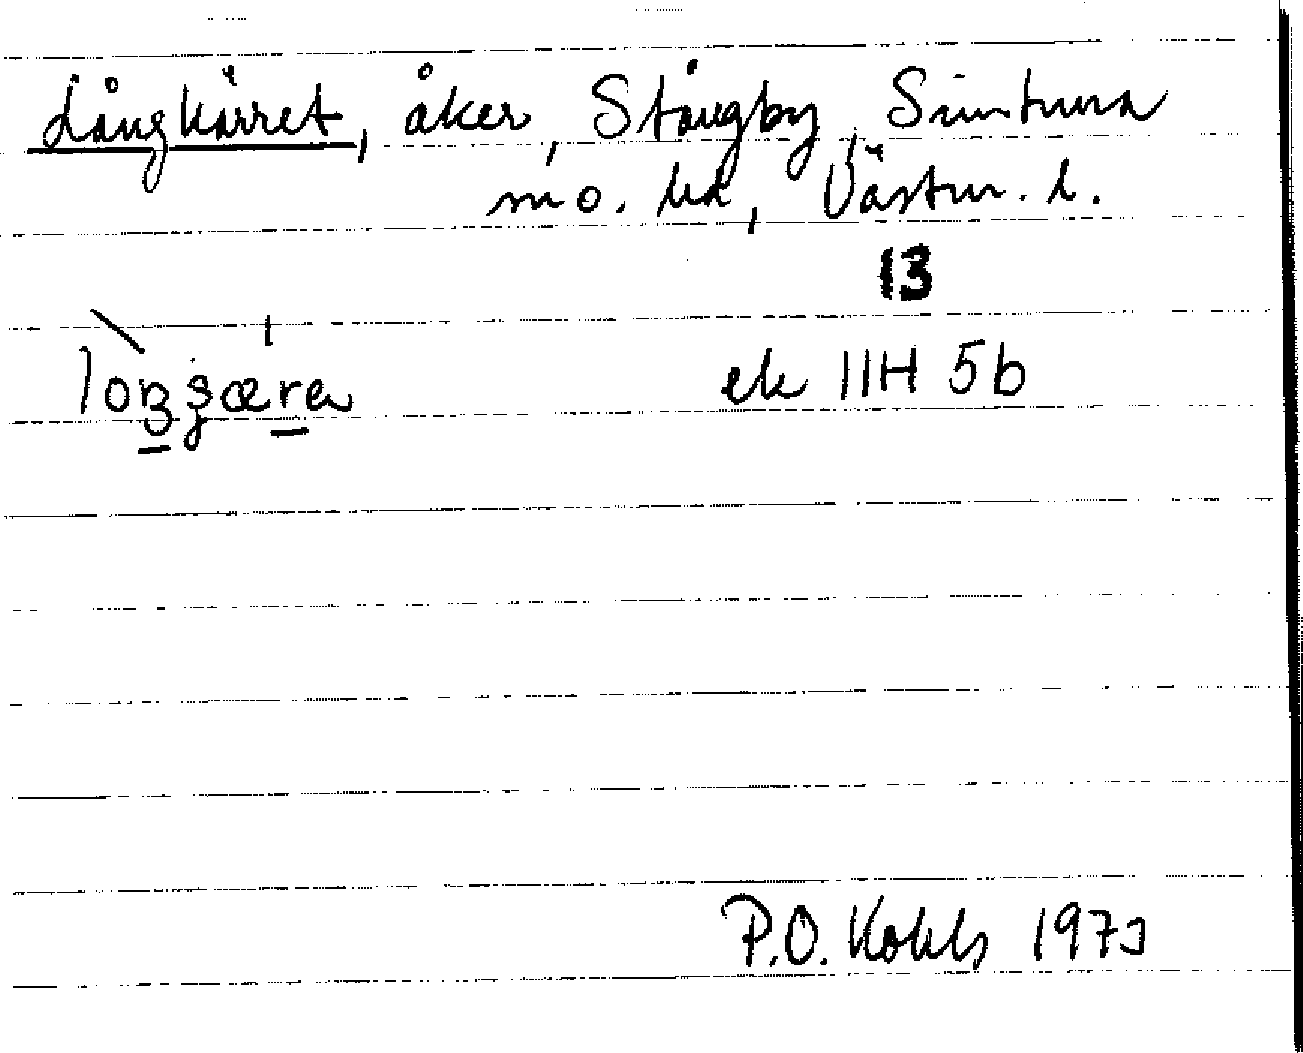 Långkärret, åker, Stångby, Simtuna
sn o. hd, Västm. l.
13
ek 11H 5b
P.O. Kohls 1973